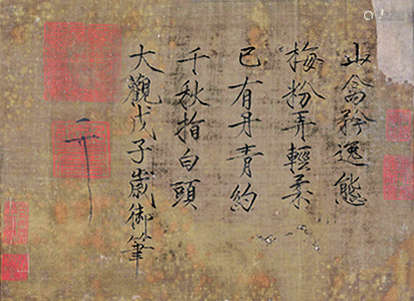 山禽矜逸態
梅粉弄輕柔
已有丹青約
千秋指白頭
大觀戊子歲御筆